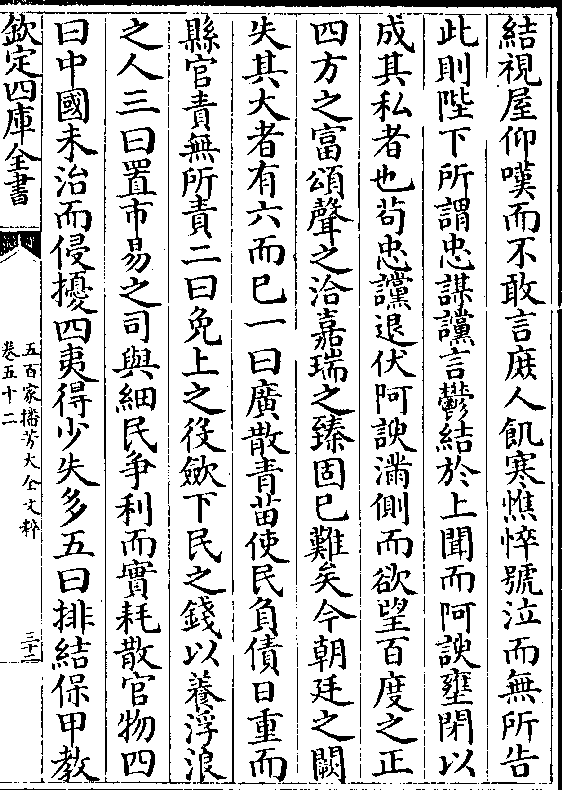 結視屋仰嘆而不敢言庶人飢寒憔悴號泣而無所告
此則陛下所謂忠謀讜言鬱結於上聞而阿諛壅閉以
成其私者也苟忠讜退伏阿諛滿側而欲望百度之正
四方之富頌聲之洽嘉瑞之臻固已難矣今朝廷之闕
失其大者有六而已一曰廣散青苗使民負債日重而
縣官責無所責二曰免上之役斂下民之錢以養浮浪
之人三曰置市易之司與細民争利而實耗散官物四
曰中國未治而侵擾四夷得少失多五曰排結保甲教
欽定四庫全書
五百家播芳大全文粹
卷五十二
三十二